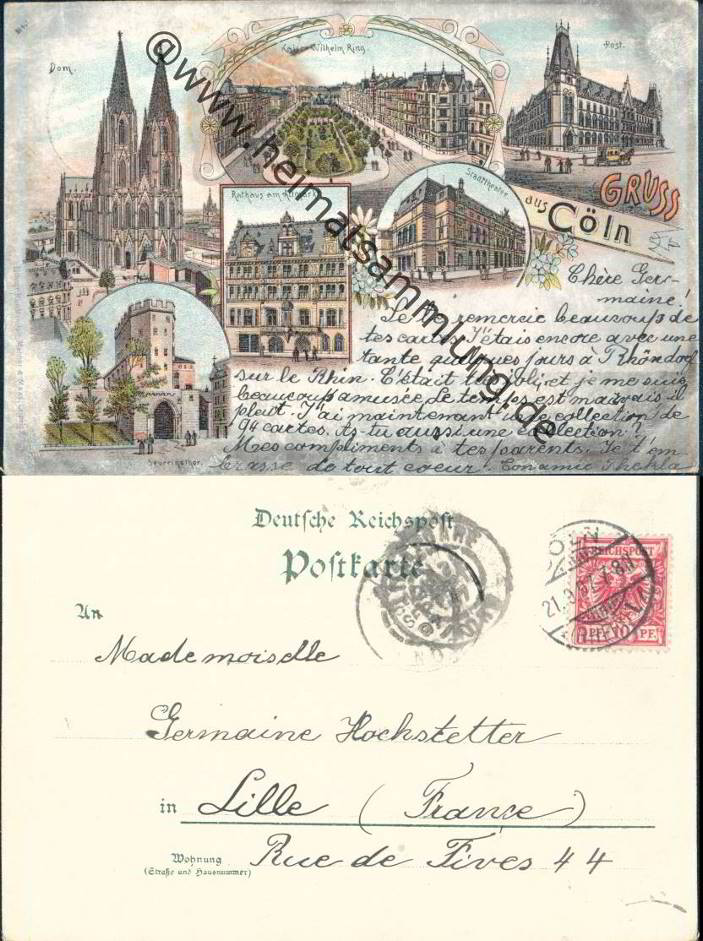 Kaiser Wilhelm Ring.
Post.
Dom.
Rathaus am Altmarkt
Stadttheater
GRUSS
aus Cöln
Severinsthor.
@www.heimatsammlung.de
Chère Ger-
maine!
Je te remercie beaucoup de
tes cartes. J'étais encore avec une
tante quelques jours à Rhöndorf
sur le Rhin. C'était très joli, et je me suis
beaucoup amusée. Le temps est mauvais il
pleut. J'ai maintenant une collection de
94 cartes. As-tu aussi une collection?
Mes compliments à tes parents. Je t'em
brasse de tout coeur. Ton amie Thekla
Deutsche Reichspost
Postkarte
An
Mademoiselle
Germaine Hochstetter
in Lille (France)
Wohnung Rue de Fives 44
(Straße und Hausnummer)
CÖLN
REICHSPOST